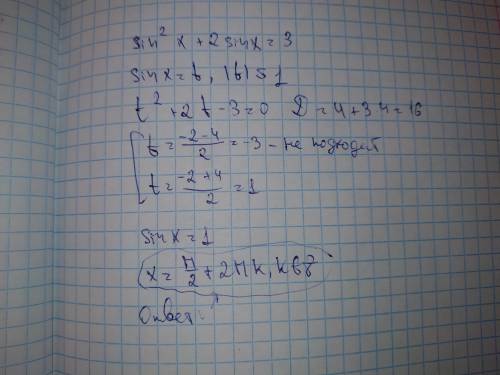 sin² x + 2 sinx = 3
sinx = t, |t| ≤ 1
t² + 2t - 3 = 0 D = 4 + 3·4 = 16
[ t = (-2-4)/2 = -3 - не подходит
t = (-2+4)/2 = 1
sinx = 1
x = π/2 + 2πk, k∈Z
Ответ